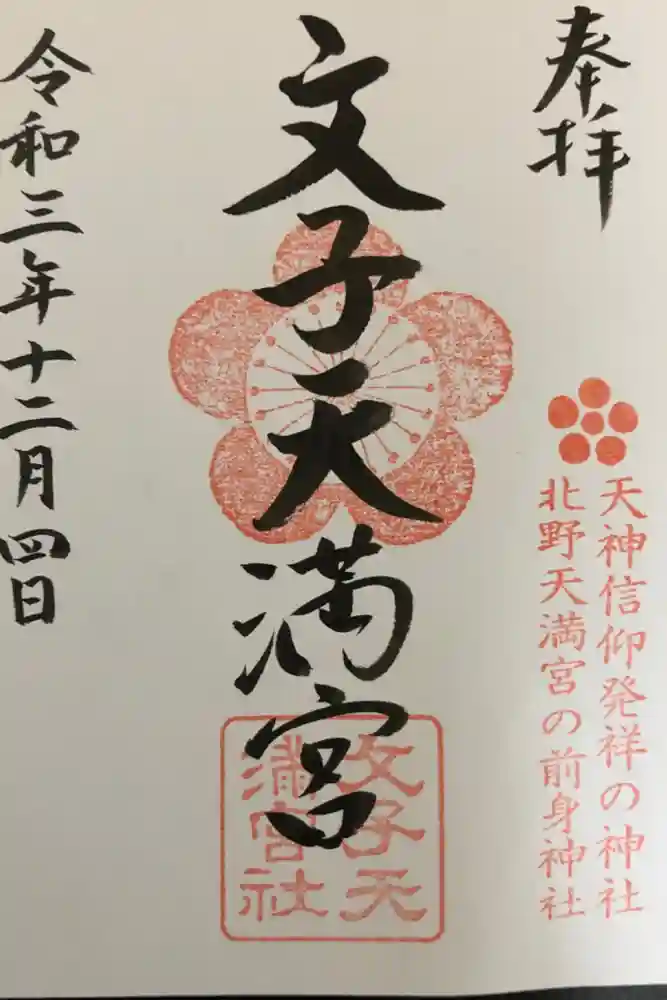 奉拝
天神信仰発祥の神社
北野天満宮の前身神社
文子天満宮
文子天
満宮社
令和三年十二月四日